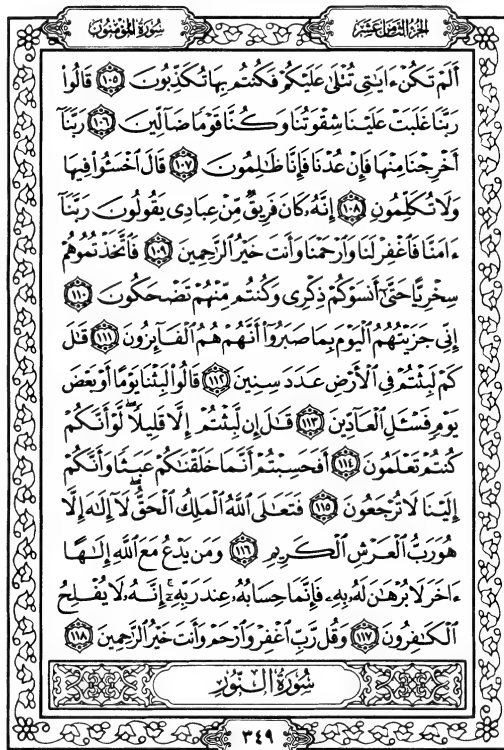 الجزء الثامن عشر
سورة المؤمنون
أَلَمْ تَكُنْ ءَايَٰتِى تُتْلَىٰ عَلَيْكُمْ فَكُنتُم بِهَا تُكَذِّبُونَ ١٠٥ قَالُوا۟
رَبَّنَا غَلَبَتْ عَلَيْنَا شِقْوَتُنَا وَكُنَّا قَوْمًا ضَآلِّينَ ١٠٦ رَبَّنَآ
أَخْرِجْنَا مِنْهَا فَإِنْ عُدْنَا فَإِنَّا ظَٰلِمُونَ ١٠٧ قَالَ ٱخْسَـُٔوا۟ فِيهَا
وَلَا تُكَلِّمُونِ ١٠٨ إِنَّهُۥ كَانَ فَرِيقٌ مِّنْ عِبَادِى يَقُولُونَ رَبَّنَآ
ءَامَنَّا فَٱغْفِرْ لَنَا وَٱرْحَمْنَا وَأَنتَ خَيْرُ ٱلرَّٰحِمِينَ ١٠٩ فَٱتَّخَذْتُمُوهُمْ
سِخْرِيًّا حَتَّىٰٓ أَنسَوْكُمْ ذِكْرِى وَكُنتُم مِّنْهُمْ تَضْحَكُونَ ١١٠
إِنِّى جَزَيْتُهُمُ ٱلْيَوْمَ بِمَا صَبَرُوٓا۟ أَنَّهُمْ هُمُ ٱلْفَآئِزُونَ ١١١ قَٰلَ
كَمْ لَبِثْتُمْ فِى ٱلْأَرْضِ عَدَدَ سِنِينَ ١١٢ قَالُوا۟ لَبِثْنَا يَوْمًا أَوْ بَعْضَ
يَوْمٍ فَسْـَٔلِ ٱلْعَآدِّينَ ١١٣ قَٰلَ إِن لَّبِثْتُمْ إِلَّا قَلِيلًا ۖ لَّوْ أَنَّكُمْ
كُنتُمْ تَعْلَمُونَ ١١٤ أَفَحَسِبْتُمْ أَنَّمَا خَلَقْنَٰكُمْ عَبَثًا وَأَنَّكُمْ
إِلَيْنَا لَا تُرْجَعُونَ ١١٥ فَتَعَٰلَى ٱللَّهُ ٱلْمَلِكُ ٱلْحَقُّ ۖ لَآ إِلَٰهَ إِلَّا
هُوَ رَبُّ ٱلْعَرْشِ ٱلْكَرِيمِ ١١٦ وَمَن يَدْعُ مَعَ ٱللَّهِ إِلَٰهًا
ءَاخَرَ لَا بُرْهَٰنَ لَهُۥ بِهِۦ فَإِنَّمَا حِسَابُهُۥ عِندَ رَبِّهِۦٓ ۚ إِنَّهُۥ لَا يُفْلِحُ
ٱلْكَٰفِرُونَ ١١٧ وَقُل رَّبِّ ٱغْفِرْ وَٱرْحَمْ وَأَنتَ خَيْرُ ٱلرَّٰحِمِينَ ١١٨
سورة النور
٣٤٩